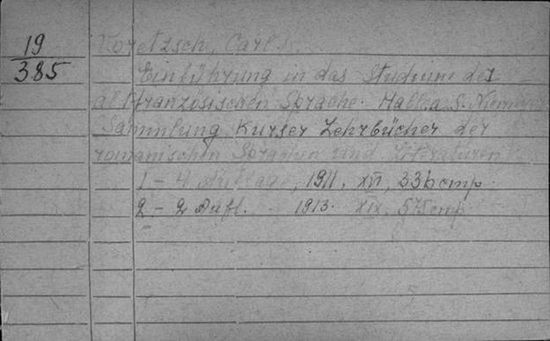 19
385
Voretzsch, Carl.
Einführung in das Studium der
altfranzösischen Sprache. Halle a. S. Niemeyer
Sammlung Kurser Lehrbücher der
romanischen Sprachen und Literaturen
1 – 4 Auflage, 1911. XVI, 336 стр.
2 – 2 Aufl. 1913. XIX, 575 стр.